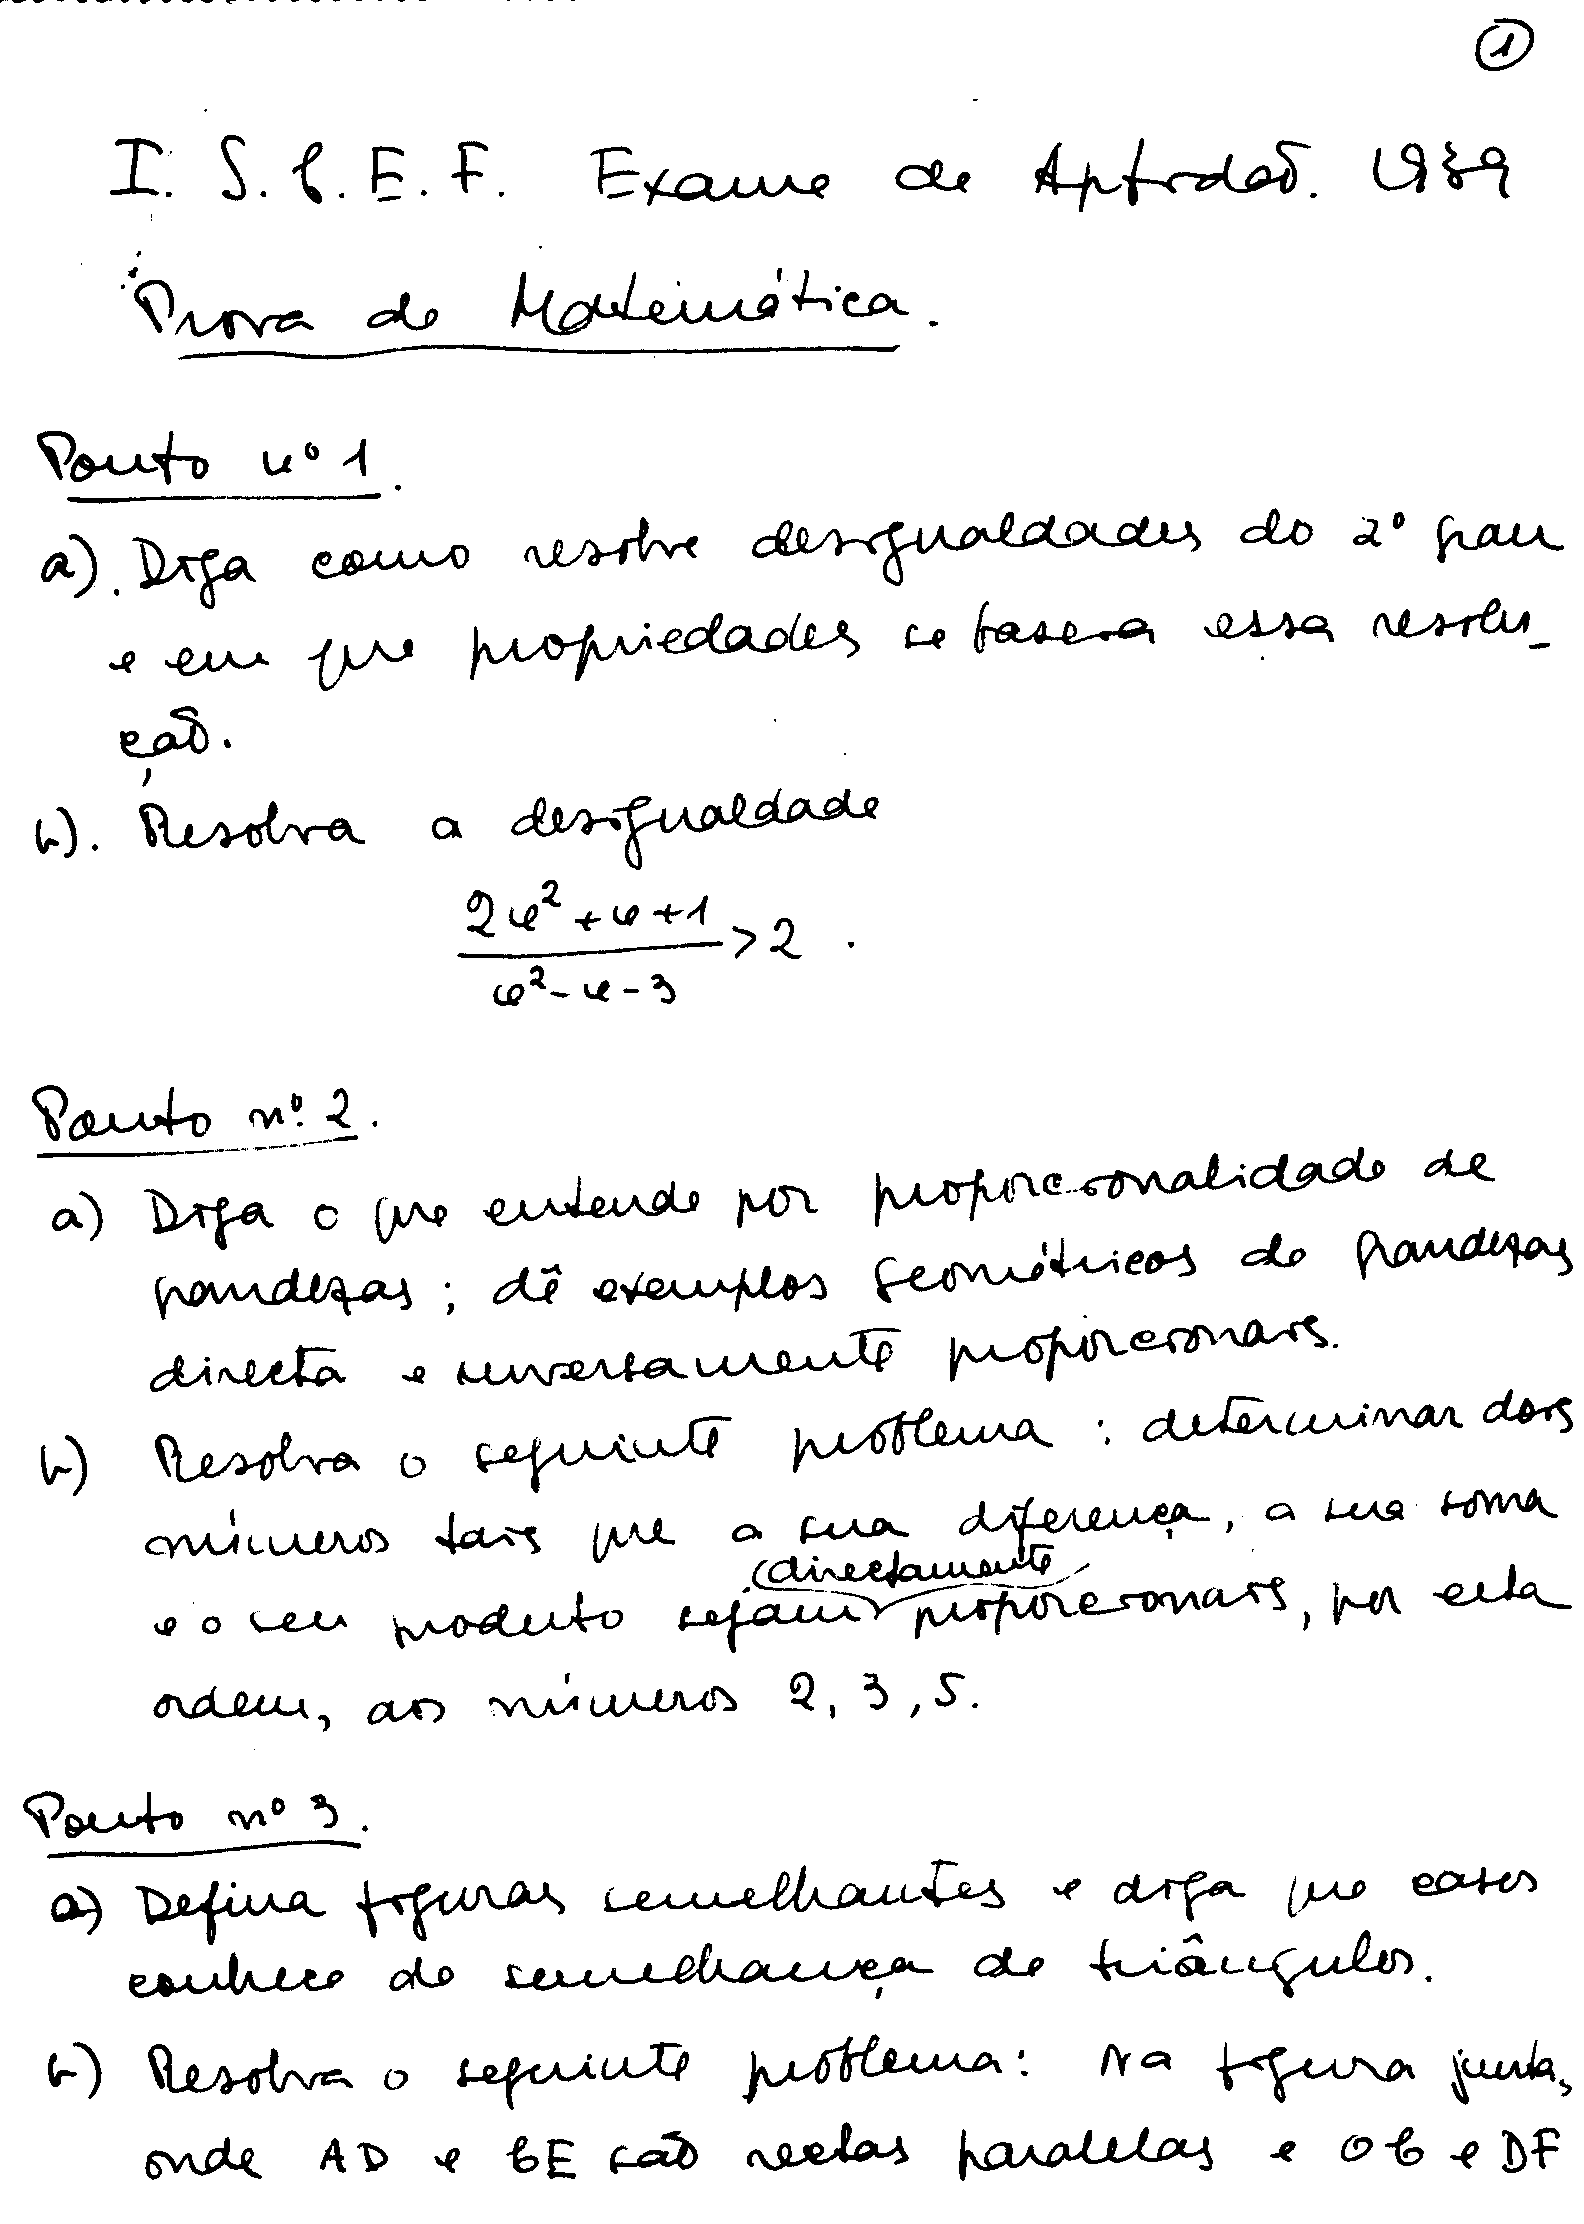 1
I. S. C. E. F. Exame de Aptidão. 1939
Prova de Matemática.
Ponto nº 1.
a). Diga como resolve desigualdades do 2º grau
e em que propriedades se baseia essa resolu-
ção.
b). Resolva a desigualdade
(2x² + x + 1)/(x² - x - 3) > 2.
Ponto nº 2.
a) Diga o que entende por proporcionalidade de
grandezas; dê exemplos geométricos de grandezas
directa e inversamente proporcionais.
b) Resolva o seguinte problema: determinar dois
números tais que a sua diferença, a sua soma
e o seu produto sejam directamente proporcionais, por esta
ordem, aos números 2, 3, 5.
Ponto nº 3.
a) Defina figuras semelhantes e diga que casos
conhece de semelhança de triângulos.
b) Resolva o seguinte problema: Na figura junta,
onde AD e CE são rectas paralelas e OC e DF